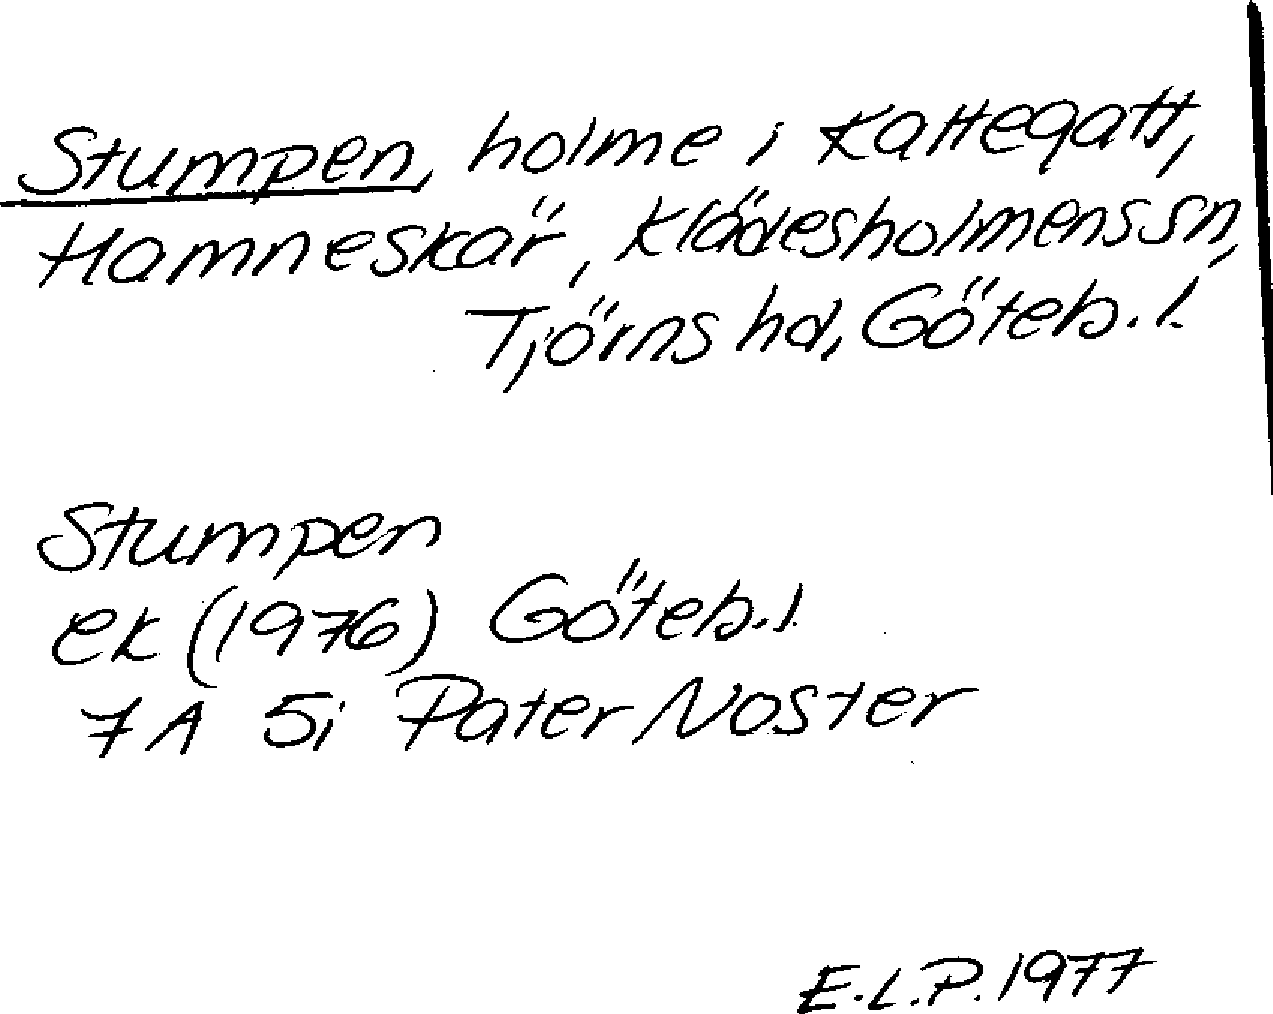 Stumpen, holme i Kattegatt,
Hamneskär, Klädesholmens sn,
Tjörns hd, Göteb. l.
Stumpen
ek (1976) Göteb. l.
7A 5i Pater Noster
E.L.P. 1977